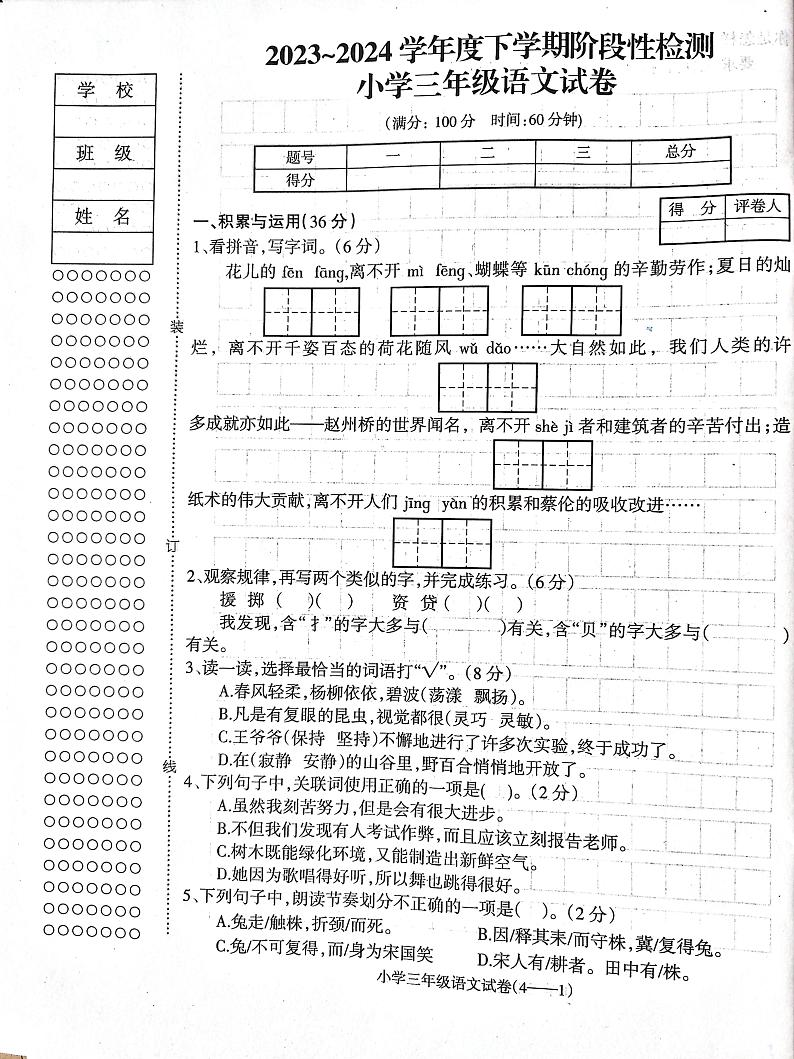 2023~2024学年度下学期阶段性检测
小学三年级语文试卷
(满分：100分 时间：60分钟)
学 校
班 级
姓 名
题号 一 二 三 总分
得分
得 分 评卷人
一、积累与运用(36分)
1、看拼音,写字词。(6分)
花儿的 fēn fāng,离不开 mì fēng、蝴蝶等 kūn chóng 的辛勤劳作;夏日的灿
烂，离不开千姿百态的荷花随风 wǔ dǎo……大自然如此，我们人类的许
多成就亦如此——赵州桥的世界闻名，离不开 shè jì 者和建筑者的辛苦付出;造
纸术的伟大贡献,离不开人们 jīng yàn 的积累和蔡伦的吸收改进……
2、观察规律,再写两个类似的字,并完成练习。(6分)
援 掷 ( )( ) 资 贷 ( )( )
我发现,含“扌”的字大多与( )有关,含“贝”的字大多与( )
有关。
3、读一读,选择最恰当的词语打“√”。(8分)
A.春风轻柔,杨柳依依,碧波(荡漾 飘扬)。
B.凡是有复眼的昆虫,视觉都很(灵巧 灵敏)。
C.王爷爷(保持 坚持)不懈地进行了许多次实验,终于成功了。
D.在(寂静 安静)的山谷里,野百合悄悄地开放了。
4、下列句子中,关联词使用正确的一项是( )。(2分)
A.虽然我刻苦努力,但是会有很大进步。
B.不但我们发现有人考试作弊,而且应该立刻报告老师。
C.树木既能绿化环境,又能制造出新鲜空气。
D.她因为歌唱得好听,所以舞也跳得很好。
5、下列句子中,朗读节奏划分不正确的一项是( )。(2分)
A.兔走/触株,折颈/而死。
B.因/释其耒/而守株,冀/复得兔。
C.兔/不可复得,而/身为宋国笑
D.宋人有/耕者。田中有/株。
装
订
线
小学三年级语文试卷(4——1)